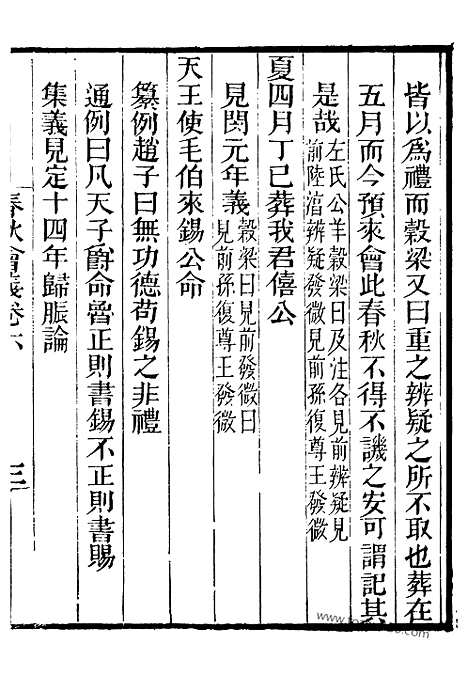 皆以爲禮而穀梁又曰重之辨疑之所不取也葬在
五月而今預來會此春秋不得不譏之安可謂記其
是哉左氏公羊穀梁曰及注各見前辨疑見
前陸淳辨疑發微見前孫復尊王發微
夏四月丁巳葬我君僖公
見閔元年義穀梁曰見前發微曰
見前孫復尊王發微
天王使毛伯來錫公命
纂例趙子曰無功德苟錫之非禮
通例曰凡天子爵命魯正則書錫不正則書賜
集義見定十四年歸脤論
春秋會義卷六
三